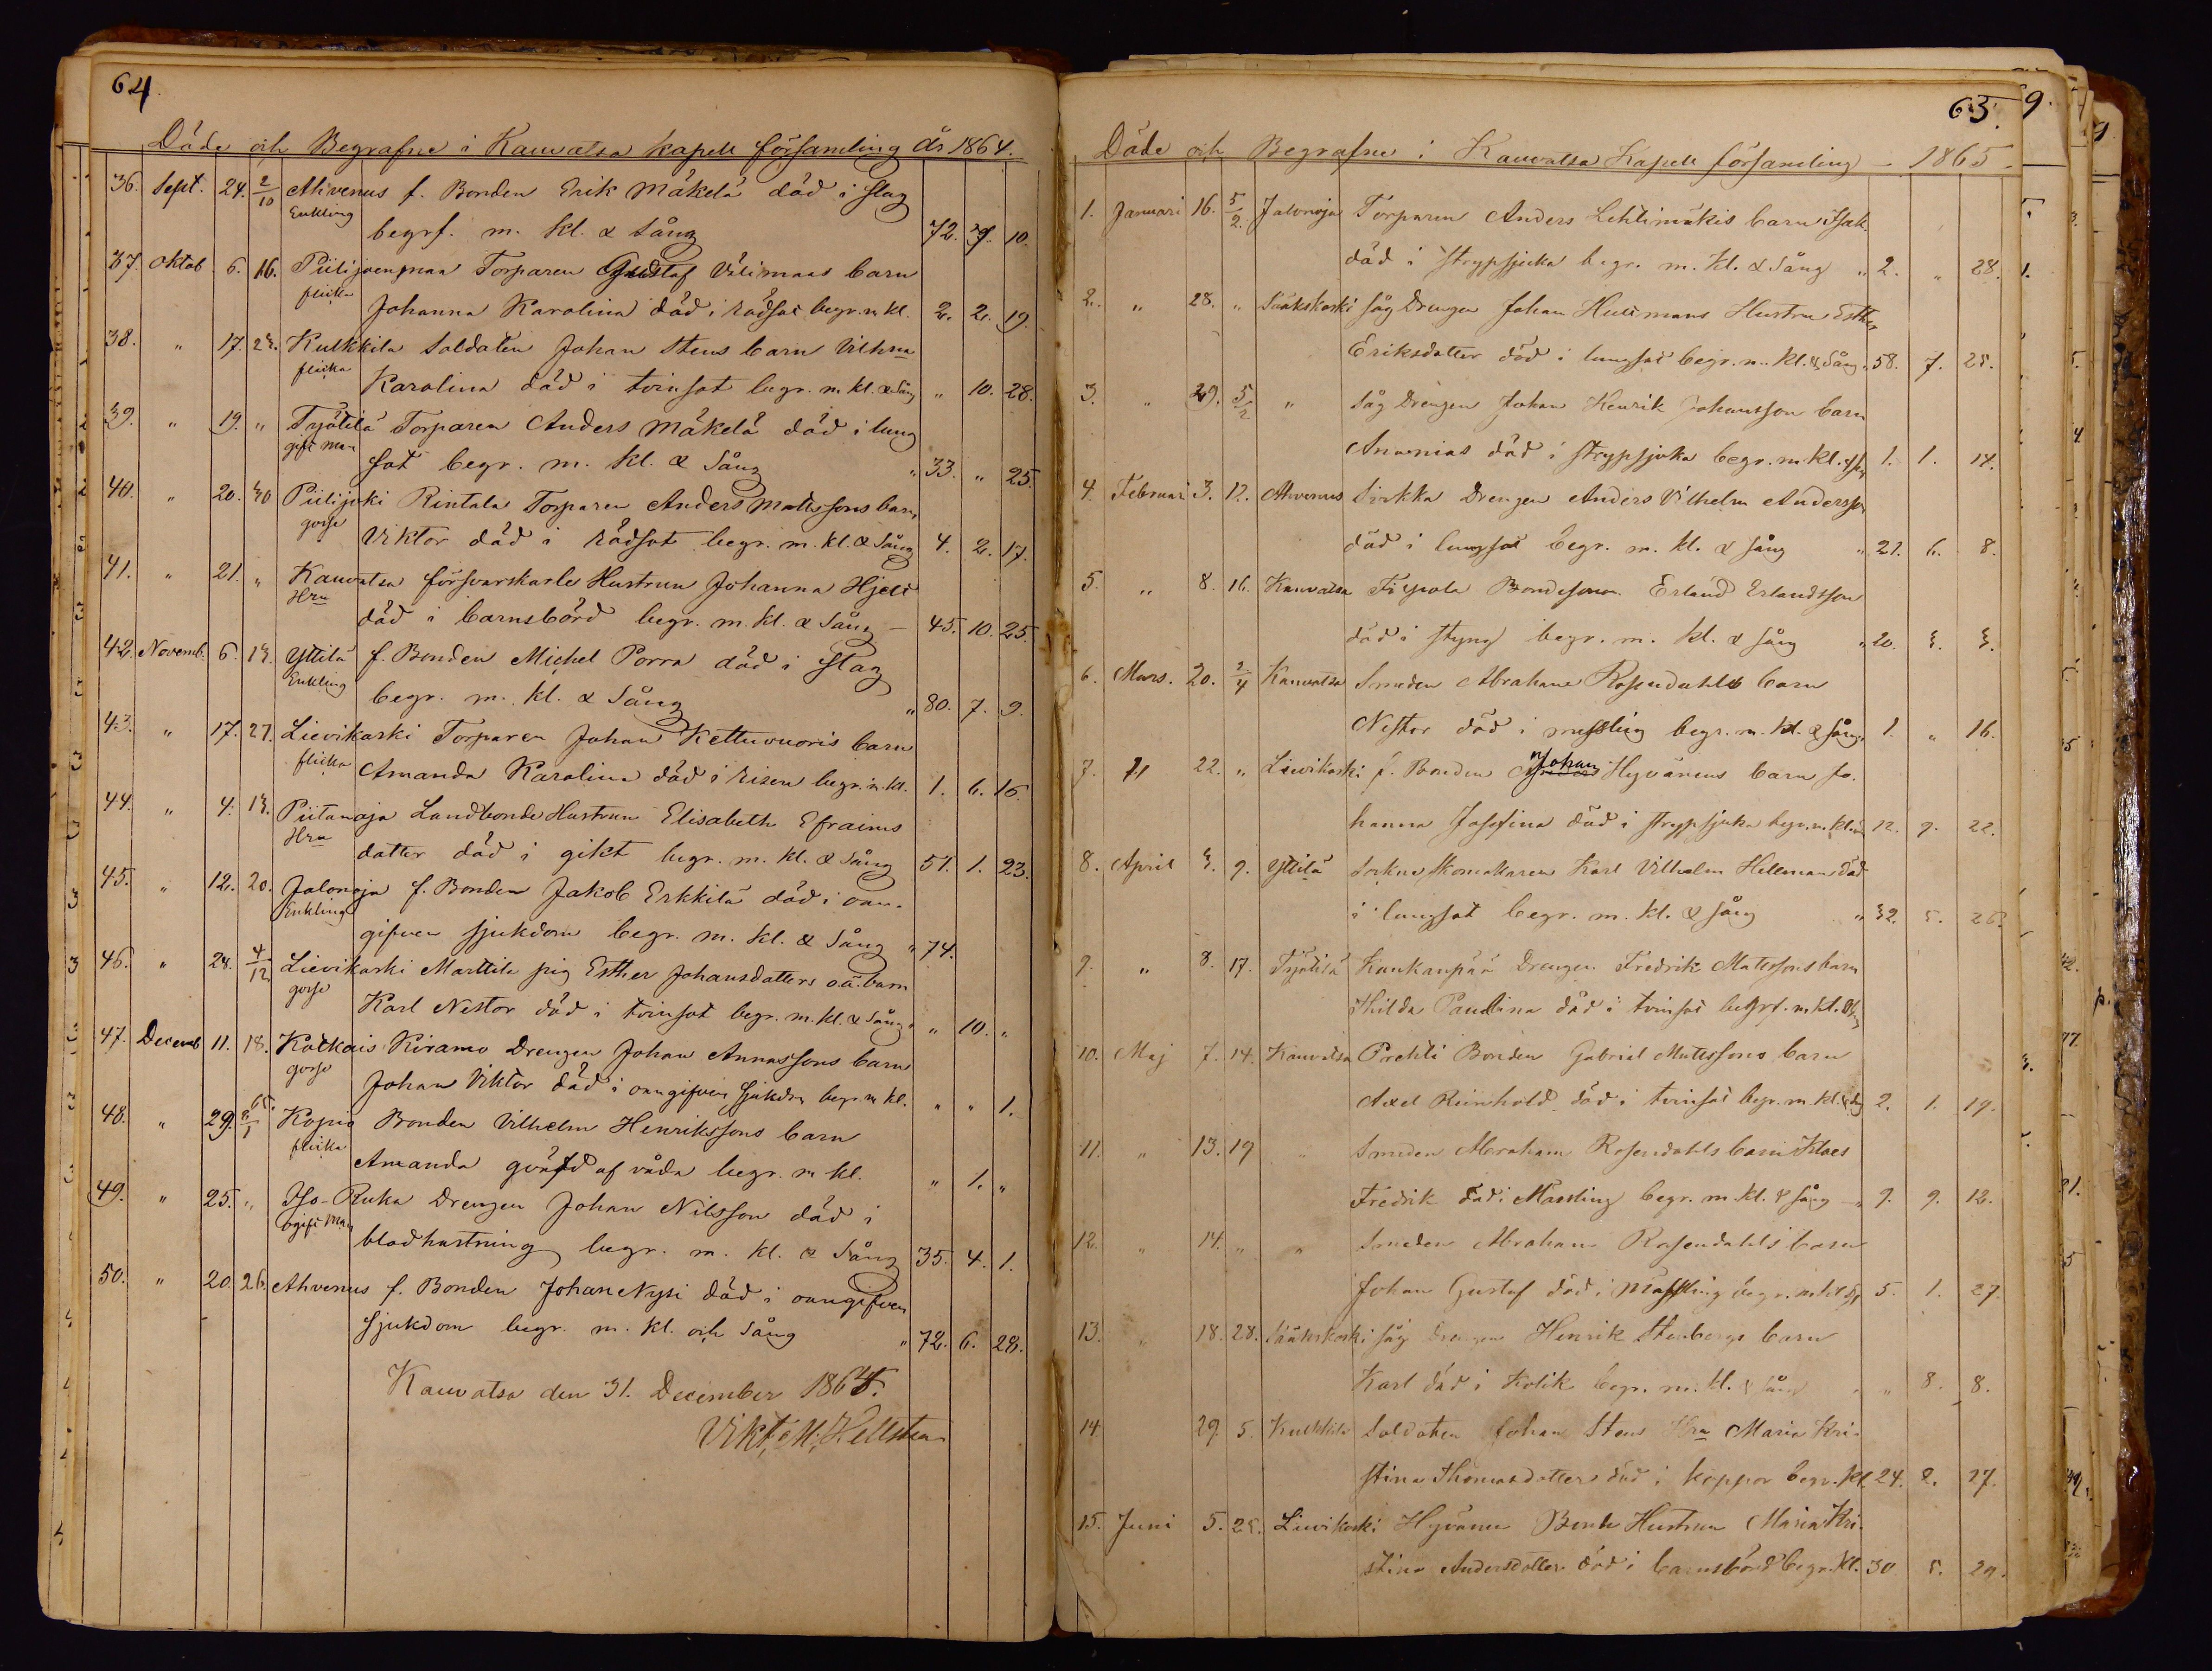 64.
Döde och Begrafne i Kauvatsa kapell församling år 1864.
36. Sept. 24. 2/10 Ahvenus f. Bonden Erik Mäkelä död i slag
Enkling begrf. m. kl. & sång 72. 7. 10.
37. Oktob. 6. 16. Piilijoenmaa Torparen Gustaf Välimaas barn
flicka Johanna Karolina död i rödsot begr. m kl. 2. 2. 19.
38. " 17. 23. Kulkkila Soldaten Johan Stens barn Vilhna
flicka Karolina död i tvinsot begr. m. kl. & sång " 10. 28.
39. " 19. " Työtilä Torparen Anders Mäkelä död i lung
gift man sot begr. m. kl. & sång " 33. " 25.
40. " 20. 30 Piilijoki Rintala Torparen Anders Matssons barn
gosse Viktor död i rödsot begr. m. kl. & sång 4. 2. 17.
41. " 21. " Kauvatsa försvarskarls Hustrun Johanna Hjelt
Hru död i barnsbörd begr. m. kl. & sång — 45. 10. 25.
42. Novemb. 6. 13. Yttilä f. Bonden Michel Porra död i slag
Enkling begr. m. kl. & sång " 80. 7. 9.
43. " 17. 27. Lievikoski Torparen Johan Kettuvuoris barn
flicka Amanda Karolina död i risen begr. m. kl. 1. 6. 16.
44. " 4. 13. Piitanoja Landbonde Hustrun Elisabeth Efraims
Hru datter död i gikt begr. m. kl. & sång 51. 1. 23.
45. " 12. 20. Jalonoja f. Bonden Jakob Erkkilä död i oan-
Enkling gifven sjukdom begr. m. kl. & sång " 74.
46. " 28. 4/12 Lievikoski Marttila pig Esther Johansdatters o.ä. barn
gosse Karl Nestor död i tvinsot begr. m. kl. & sång " 10. "
47. Decemb 11. 18. Kotkais Kiramo Drengen Johan Annassons barn
gosse Johan Viktor död i oangifven sjukdom begr. m kl. " " 1.
48. " 29. 2/1 65. Kopio Bonden Vilhelm Henrikssons barn
flicka Amanda qväfd af våda begr. m kl. " 1. "
49. " 25. " Iso-Ruka Drengen Johan Nilsson död i
ogift man blodhustning begr. m. kl. & sång 35. 4. 1.
50. " 20. 26. Ahvenus f. Bonden Johan Nysi död i oangifven
sjukdom begr. m. kl. och sång " 72. 6. 28.
Kauvatsa den 31. December 1864.
Vikt. M. Hellsten
65.
Döde och Begrafne i Kauvatsa Kapell församling - 1865.
1. Januari 16. 5/2. Jalonoja Torparen Anders Lehtimäkis barn Isak
död i strypsjuka begr. m. kl. & sång " 2. " 28.
2. " 28. " Sääkskoski såg Drengen Johan Hulimans Hustru Esther
Eriksdatter död i lungsot begr. m. kl. & sång 58. 7. 25.
3. " 29. 5/2 " Såg Drengen Johan Henrik Johansson barn
Ananias död i strypsjuka begr. m. kl. & sång 1. 1. 14.
4. Februari 3. 12. Ahvenus Sirkka Drengen Anders Vilhelm Andersson
död i lungsot begr. m. kl. & sång " 21. 6. 8.
5. " 8. 16. Kauvatsa Bondesonen Erland Erlandsson
död i styng begr. m. kl. & sång " 20. 3. 3.
6. Mars. 20. 2/4 Kauvatsa Smeden Abraham Rosendahls barn
Nestor död i messling begr. m. kl. & sång 1. " 16.
7. " 22. " Lievikoski f. Bonden Johan Hyvänens barn Jo-
hanna Josefina död i strypsjuka begr. m. kl. & sång 12. 9. 22.
8. April 3. 9. Yttilä Sockne skomakaren Karl Vilhelm Hellman död
i lungsot begr. m. kl. & sång " 32. 5. 26.
9. " 8. 17. Työtilä Kankanpää Drengen Fredrik Matssons barn
Hilda Paulina död i tvinsot begrf. m. kl. & sång
10. Maj 7. 14. Kauvatsa Prehti Bonden Gabriel Matssons barn
Axel Reinhold död i tvinsot begr. m. kl. & sång 2. 1. 19.
11. " 13. 19 " Smeden Abraham Rosendahls barn Klaes
Fredrik död i Mässling begr. m. kl. & sång " 9. 9. 12.
12. " 14. " " Smeden Abraham Rosendahls barn
Johan Gustaf död i Mässling begr. m kl & sg 5. 1. 27.
13. " 18. 28. Sääkskoski såg Drengen Henrik Stenbergs barn
Karl död i kolik begr. m. kl. & sång " " 8. 8.
14. 29. 5. Kulkkila Soldaten Johan Stens Hru Maria Kri-
stina Thomasdotter död i koppor begr. kl. 24. 2. 27.
15. Juni 5. 25. Lievikoski Hyvänen Bonde Hustrun Maria Kri-
stina Andersdotter död i barnsbörd begr. kl. 30 5. 29.